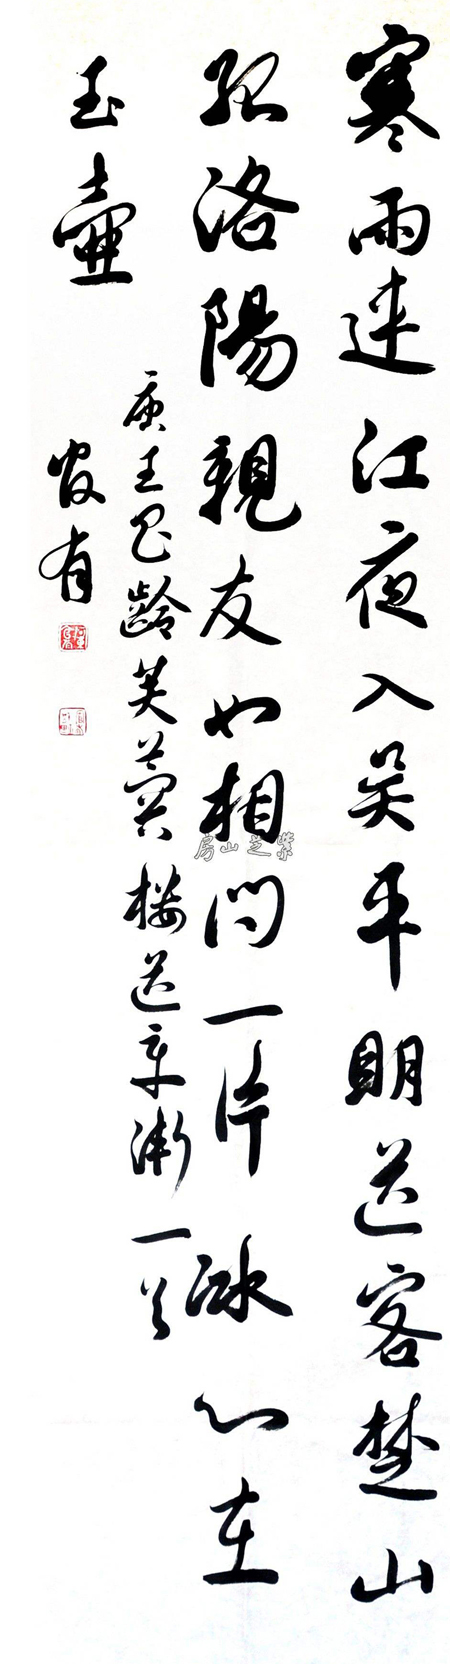 寒雨連江夜入吳平明送客楚山
孤洛陽親友如相問一片冰心在
玉壺
唐王昌齡芙蓉樓送辛漸一首
有
紫芝山房